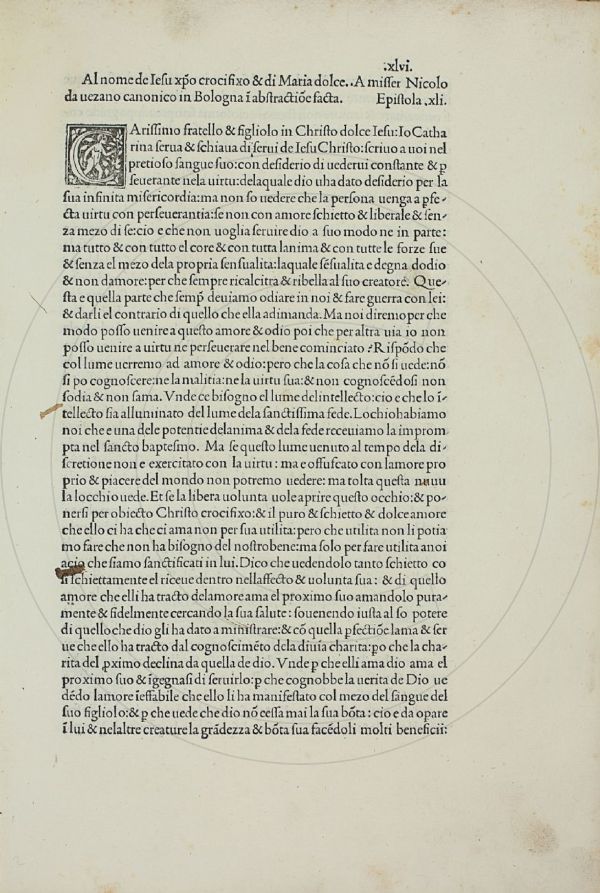 .xlvi.
Al nome de Iesu xp̄o crocifixo & di Maria dolce.. A misser Nicolo
da uezano canonico in Bologna ī abstractiōe facta. Epistola .xli.
CArissimo fratello & figliolo in Christo dolce Iesu: Io Catha
rina serua & schiaua di serui de Iesu Christo: scriuo a uoi nel
pretioso sangue suo: con desiderio di uederui constante & p
seuerante nela uirtu: delaquale dio uha dato desiderio per la
sua infinita misericordia: ma non so uedere che la persona uenga a ꝑfe-
cta uirtu con perseuerantia: se non con amore schietto & liberale & sen-
za mezo di se: cio e che non uoglia seruire dio a suo modo ne in parte:
ma tutto & con tutto el core & con tutta lanima & con tutte le forze sue
& senza el mezo dela propria sensualita: laquale sēsualita e degna dodio
& non damore: per che sempre ricalcitra & ribella al suo creatore. Que-
sta e quella parte che semꝑ deuiamo odiare in noi & fare guerra con lei:
& darli el contrario di quello che ella adimanda. Ma noi diremo per che
modo posso uenire a questo amore & odio poi che per altra uia io non
posso uenire a uirtu ne perseuerare nel bene cominciato? Rispōdo che
col lume uerremo ad amore & odio: pero che la cosa che nō si uede: nō
si po cognoscere: ne la malitia: ne la uirtu sua: & non cognoscēdosi non
sodia & non sama. Vnde ce bisogno el lume delintellecto: cio e che lo ī-
tellecto sia alluminato del lume dela sanctissima fede. Lochio habiamo
noi che e una dele potentie delanima & dela fede rceuiamo la improm
pta nel sancto baptesmo. Ma se questo lume uenuto al tempo dela di-
scretione non e exercitato con la uirtu: ma e offuscato con lamore pro
prio & piacere del mondo non potremo uedere: ma tolta questa nuuu
la locchio uede. Et se la libera uolunta uole aprire questo occhio: & po-
nersi per obiecto Christo crocifixo: & il puro & schietto & dolce amore
che ello ci ha che ci ama non per sua utilita: pero che utilita non li potia
mo fare che non ha bisogno del nostro bene: ma solo per fare utilita a noi
acio che siamo sanctificati in lui. Dico che uedendolo tanto schietto co
si schiettamente el riceue dentro nellaffecto & uolunta sua: & di quello
amore che elli ha tracto delamore ama el proximo suo amandolo pura-
mente & fidelmente cercando la sua salute: souenendo iusta al so potere
di quello che dio gli ha dato a ministrare: & cō quella ꝑfectiōe lama & ser
ue che ello ha tracto dal cognoscimēto dela diuīa charita: po che la cha-
rita del ꝓximo declina da quella de dio. Vnde p che elli ama dio ama el
proximo suo & īgegnasi di seruirlo: p che cognobbe la uerita de Dio ue
dēdo lamore īeffabile che ello li ha manifestato col mezo del sangue del
suo figliolo: & p che uede che dio nō cessa mai la sua bōta: cio e da opare
ī lui & nelaltre creature la grādezza & bōta sua facēdoli molti beneficii: